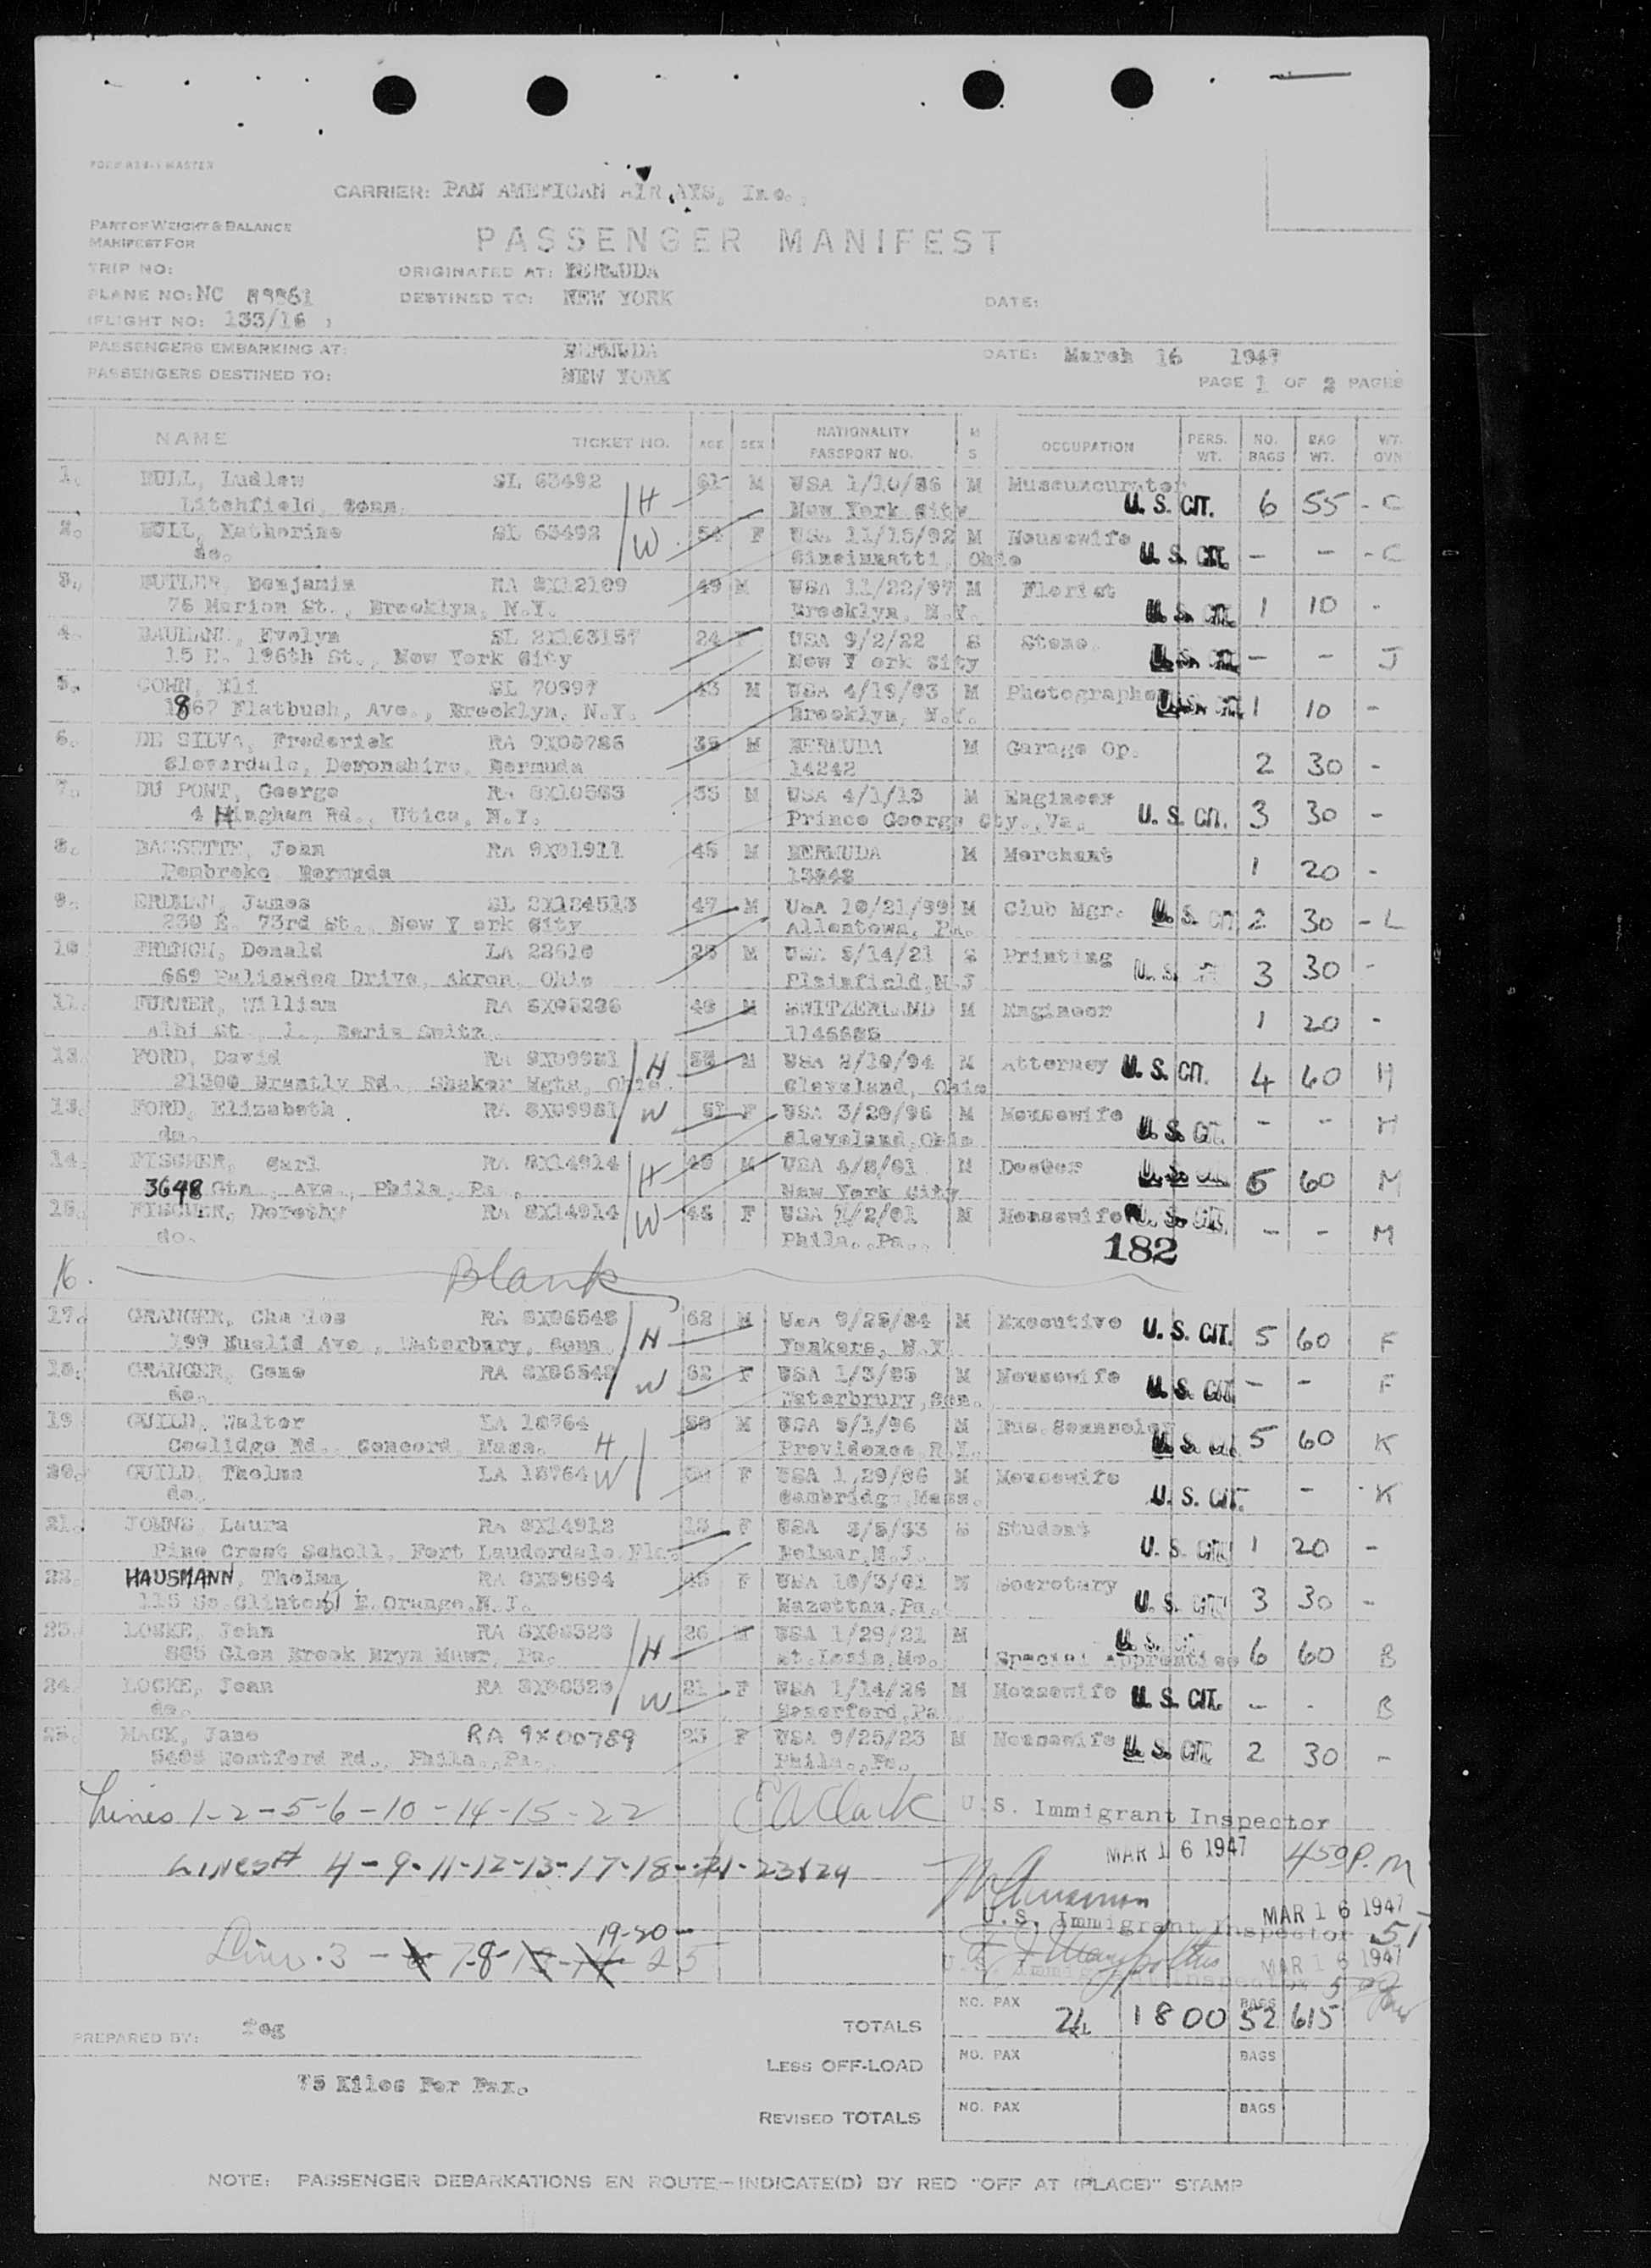 FORM
MASTER
CARRIER: PAN AMERICAN AIRWAYS, Inc.
PART OF WEIGHT & BALANCE
MANIFEST FOR
PASSENGER MANIFEST
TRIP NO:
ORIGINATED AT: BERMUDA
PLANE NO: NC 88861
DESTINED TO: NEW YORK
DATE:
(FLIGHT NO: 133/16 )
PASSENGERS EMBARKING AT: BERMUDA
DATE: March 16 1947
PASSENGERS DESTINED TO: NEW YORK
PAGE 1 OF 2 PAGES
NAME TICKET NO. AGE SEX NATIONALITY PASSPORT NO. M S OCCUPATION PERS. WT. NO. BAGS BAG WT. WT. OVN
1. BULL, Ludlow SL 63492 H 61 M USA 1/10/86 M Museumcurator
Litchfield, Conn. New York City U. S. CIT. 6 55 - C
2. BULL, Katherine SL 63492 W 54 F USA 11/15/92 M Housewife
do. Cincinnatti, Ohio U. S. CIT. - - - C
3. BUTLER, Benjamin RA 8X12109 49 M USA 11/22/97 M Florist
76 Marion St., Brooklyn, N.Y. Brooklyn, N.Y. U. S. CIT. 1 10 -
4. BAUMANN, Evelyn SL 2X163157 24 F USA 9/2/22 S Steno.
15 E. 196th St., New York City New Y ork City U. S. CIT. - - J
5. COHN, Eli SL 70997 43 M USA 4/19/03 M Photographer
1867 Flatbush, Ave., Brooklyn, N.Y. Brooklyn, N.Y. U. S. CIT. 1 10 -
6. DE SILVA, Frederick RA 9X00786 35 M BERMUDA M Garage Op.
Cloverdale, Devonshire, Bermuda 14242 2 30 -
7. DU PONT, George RA 8X10563 33 M USA 4/1/13 M Engineer
4 Hingham Rd., Utica, N.Y. Prince George Cty., Va. U. S. CIT. 3 30 -
8. BASSETTE, John RA 9X01911 45 M BERMUDA M Merchant
Pembroke Bermuda 13848 1 20 -
9. ERDMAN, James SL 2X124513 47 M USA 10/21/99 M Club Mgr.
230 E. 73rd St., New Y ork City Allentown, Pa. U. S. CIT 2 30 - L
10 FRENCH, Donald LA 22610 25 M USA 5/14/21 S Printing
669 Palisades Drive, Akron, Ohio Plainfield, N.J U. S. CIT 3 30 -
11. FURRER, William RA 8X98236 46 M SWITZERLAND M Engineer
St. 1146685 1 20 -
12. FORD, David RA 8X09981 H 53 M USA 2/10/94 M Attorney
21300 Brantly Rd., Shaker Hgts, Ohio. Cleveland, Ohio U. S. CIT. 4 60 H
13. FORD, Elizabeth RA 8X09981 W 51 F USA 3/20/96 M Housewife
do. Cleveland, Ohio U. S. CIT. - - H
14. FISCHER, Carl RA 8X14914 H 45 M USA 4/8/01 M Doctor
3648 Gtn., Ave., Phila, Pa. New York City U. S. CIT. 5 60 M
15. FISCHER, Dorothy RA 8X14914 W 46 F USA 1/2/01 M Housewife U. S. CIT.
do. Phila., Pa. 182 - - M
16. Blank
17. GRANGER, Charles RA 8X86548 H 62 M USA 9/28/84 M Executive
199 Euclid Ave., Waterbury, Conn Yonkers, N.Y. U. S. CIT. 5 60 F
18. GRANGER, Gene RA 8X86548 W 62 F USA 1/3/85 M Housewife
do. Waterbrury, Con. U. S. CIT - - F
19 GUILD, Walter LA 18764 50 M USA 5/1/96 M Bus. Counselor
Coolidge Rd., Concord, Mass. H Providence R.I. U. S. CIT. 5 60 K
20. GUILD, Thelma LA 18764 W F USA 1/29/96 M Housewife
do. Cambridge Mass. U. S. CIT. - - K
21. JOHNS, Laura RA 8X14912 13 F USA 3/5/33 S Student
Pine Crest Scholl, Fort Lauderdale Fla. Belmar, N.J. U. S. CIT. 1 20 -
22. HAUSMANN, Thelma RA 8X89694 45 F USA 10/3/01 M Secretary
115 So. Clinton, E. Orange, N.J. Hazetton, Pa. U. S. CIT. 3 30 -
23. LOCKE, John RA 8X88520 H 26 M USA 1/29/21 M U. S. CIT
885 Glen Brook Bryn Mawr, Pa. St. Louis, Mo. Special Apprentice 6 60 B
24. LOCKE, Joan RA 8X88520 W 21 F USA 1/14/26 M Housewife U. S. CIT.
do. Haverford, Pa - - B
25. MACK, Jane RA 9X00789 23 F USA 9/25/23 M Housewife U. S. CIT
Westford Rd., Phila., Pa. Phila., Pa. 2 30 -
Lines 1-2-5-6-10-14-15-22 C A Clark U.S. Immigrant Inspector
MAR 16 1947 450 P.M
Lines# 4-9-11-12-13-17-18-21-23&24
U.S. Immigrant Inspector MAR 16 1947
19-20-
Lines 3 - 7-8- 25
MAR 16 1947
PREPARED BY: feg
TOTALS NO. PAX 24 1800 BAGS 52 615
LESS OFF-LOAD NO. PAX BAGS
75 Kilos Per Pax.
REVISED TOTALS NO. PAX BAGS
NOTE: PASSENGER DEBARKATIONS EN ROUTE—INDICATE(D) BY RED "OFF AT (PLACE)" STAMP